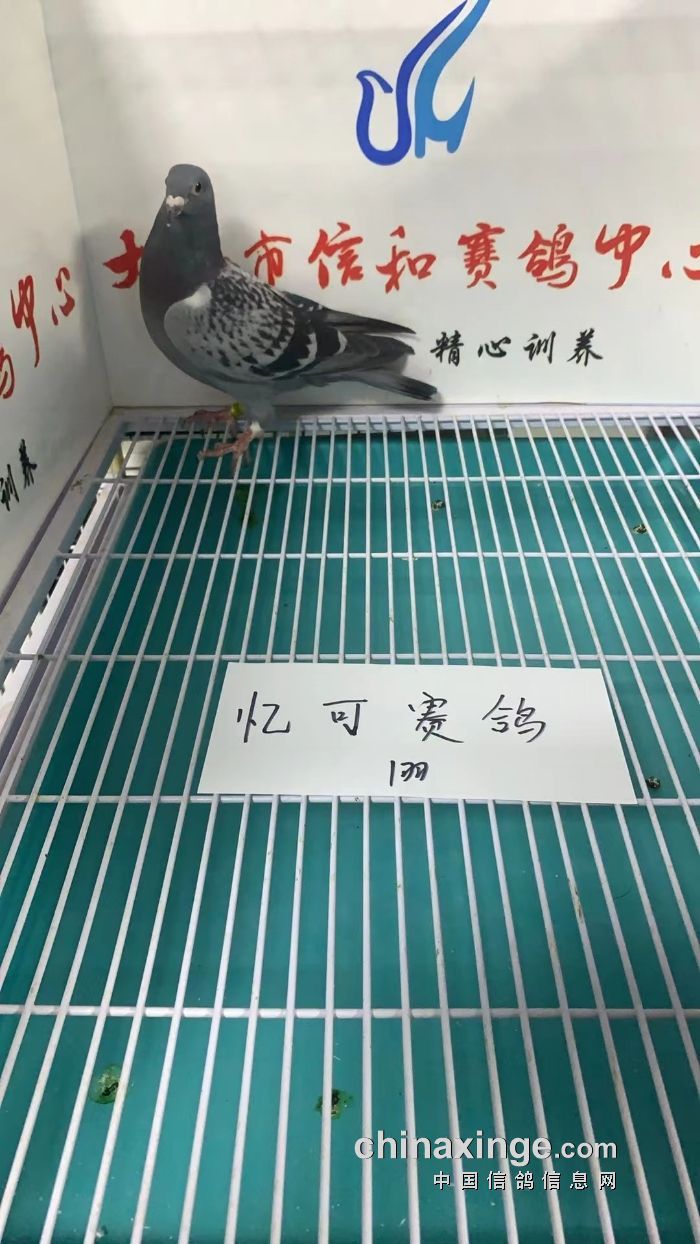 市信和赛鸽中心
精心训养
中心
训养
忆可赛鸽
1羽
chinaxinge.com
中国信鸽信息网